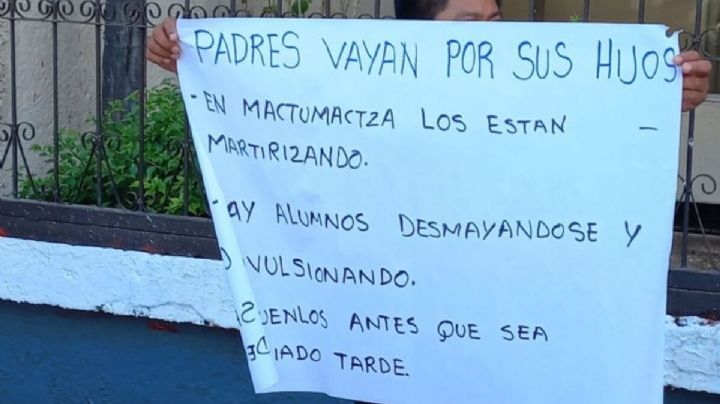 PADRES VAYAN POR SUS HIJOS
- EN MACTUMACTZA LOS ESTAN -
MARTIRIZANDO.
- AY ALUMNOS DESMAYANDOSE Y
VULSIONANDO.
UENLOS ANTES QUE SEA
IADO TARDE.